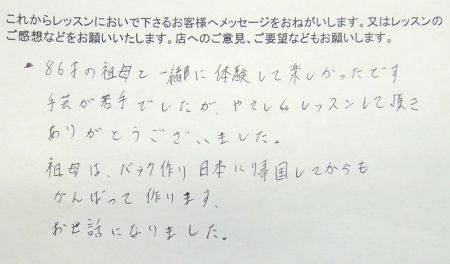 これからレッスンにおいで下さるお客様へメッセージをおねがいします。又はレッスンの
ご感想などをお願いいたします。店へのご意見、ご要望などもお願いします。
・86才の祖母と一緒に体験して楽しかったです
手芸が苦手でしたが、やさしくレッスンして頂き
ありがとうございました。
祖母は、バテク作り日本に帰国してからも
がんばって作ります。
お世話になりました。